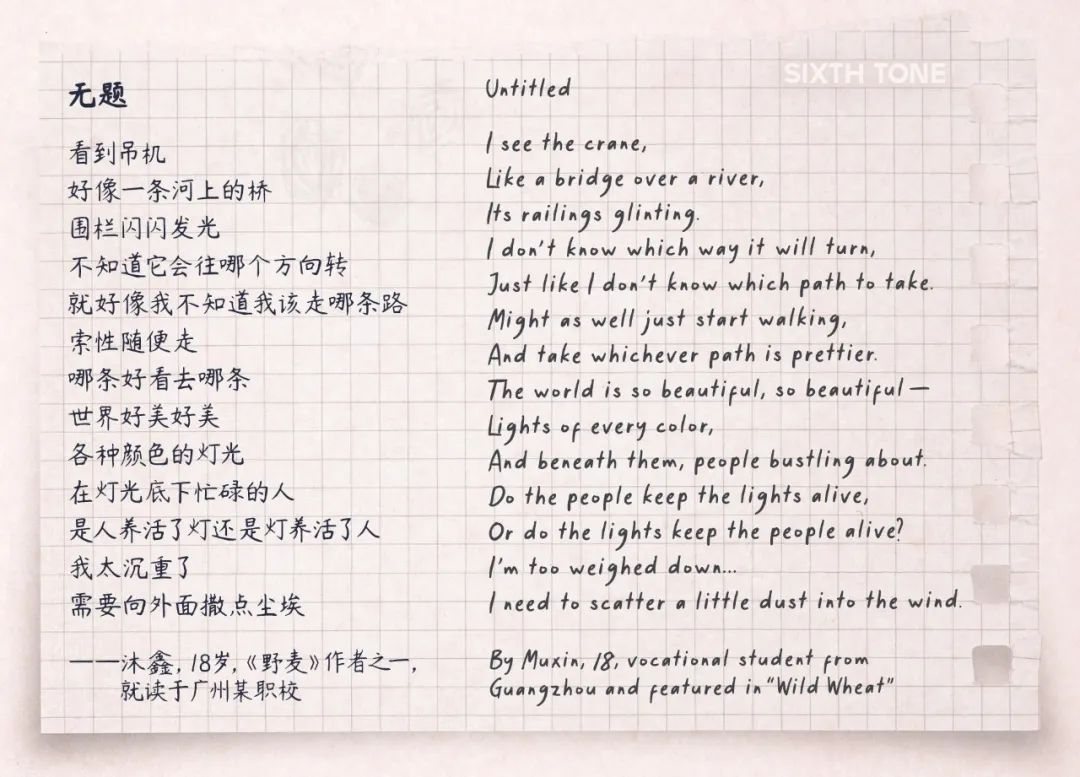 SIXTH TONE
无题
看到吊机
好像一条河上的桥
围栏闪闪发光
不知道它会往哪个方向转
就好像我不知道我该走哪条路
索性随便走
哪条好看去哪条
世界好美好美
各种颜色的灯光
在灯光底下忙碌的人
是人养活了灯还是灯养活了人
我太沉重了
需要向外面撒点尘埃
——沐鑫,18岁,《野麦》作者之一,
就读于广州某职校
Untitled
I see the crane,
Like a bridge over a river,
Its railings glinting.
I don't know which way it will turn,
Just like I don't know which path to take.
Might as well just start walking,
And take whichever path is prettier.
The world is so beautiful, so beautiful—
Lights of every color,
And beneath them, people bustling about.
Do the people keep the lights alive,
Or do the lights keep the people alive?
I'm too weighed down...
I need to scatter a little dust into the wind.
By Muxin, 18, vocational student from
Guangzhou and featured in "Wild Wheat"